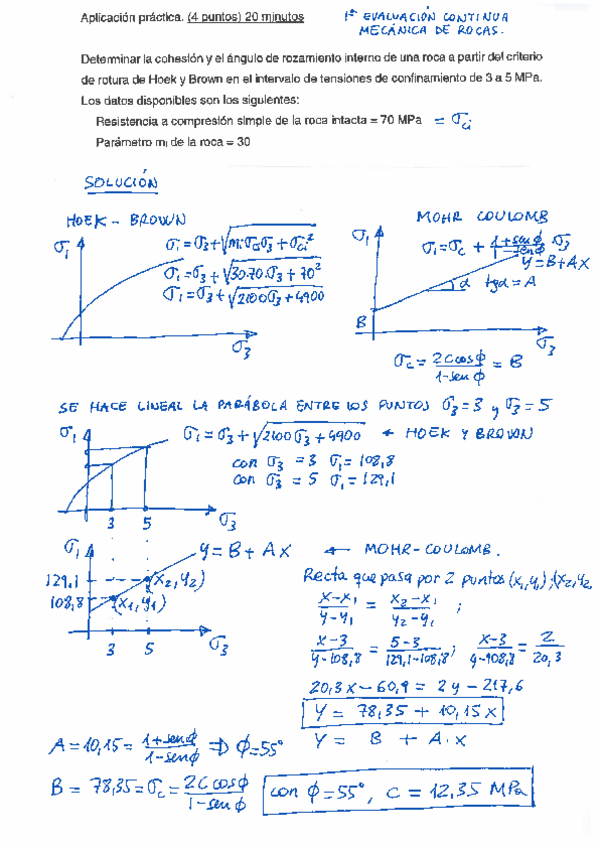 Aplicación práctica. (4 puntos) 20 minutos
1ª EVALUACIÓN CONTINUA
MECÁNICA DE ROCAS.
Determinar la cohesión y el ángulo de rozamiento interno de una roca a partir del criterio
de rotura de Hoek y Brown en el intervalo de tensiones de confinamiento de 3 a 5 MPa.
Los datos disponibles son los siguientes:
Resistencia a compresión simple de la roca intacta = 70 MPa = σci
Parámetro mi de la roca = 30
SOLUCIÓN
HOEK - BROWN
σ1
σ1 = σ3 + √(mi σci σ3 + σci²)
σ1 = σ3 + √(30·70·σ3 + 70²)
σ1 = σ3 + √(2100σ3 + 4900)
σ3
MOHR COULOMB
σ1
σ1 = σc + (1+senϕ)/(1-senϕ) σ3
y = B + AX
α tgα = A
B
σ3
σc = 2Ccosϕ/(1-senϕ) = B
SE HACE LINEAL LA PARÁBOLA ENTRE LOS PUNTOS σ3 = 3 y σ3 = 5
σ1
σ1 = σ3 + √(2100σ3 + 4900) ← HOEK Y BROWN
con σ3 = 3 σ1 = 108,8
con σ3 = 5 σ1 = 129,1
3 5 σ3
σ1
y = B + AX ← MOHR-COULOMB.
129,1 (x2, y2)
108,8 (x1, y1)
3 5 σ3
Recta que pasa por 2 puntos (x1, y1), (x2, y2
(x-x1)/(y-y1) = (x2-x1)/(y2-y1) ;
(x-3)/(y-108,8) = (5-3)/(129,1-108,8) ; (x-3)/(y-108,8) = 2/20,3
20,3x - 60,9 = 2y - 217,6
y = 78,35 + 10,15x
y = B + A·x
A = 10,15 = (1+senϕ)/(1-senϕ) ⇒ ϕ = 55°
B = 78,35 = σc = 2Ccosϕ/(1-senϕ)
con ϕ = 55°, C = 12,35 MPa